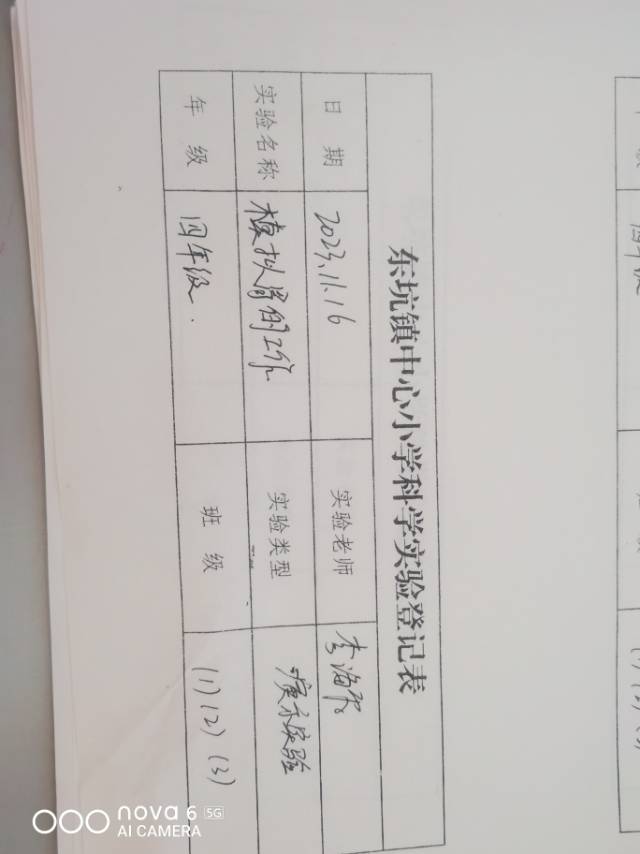 东坑镇中心小学科学实验登记表
日 期 2023.11.16 实验老师 李海
实验名称 模拟胃的 实验类型 演示实验
年 级 四年级. 班 级 (1)(2)(3)
nova 6 5G
AI CAMERA